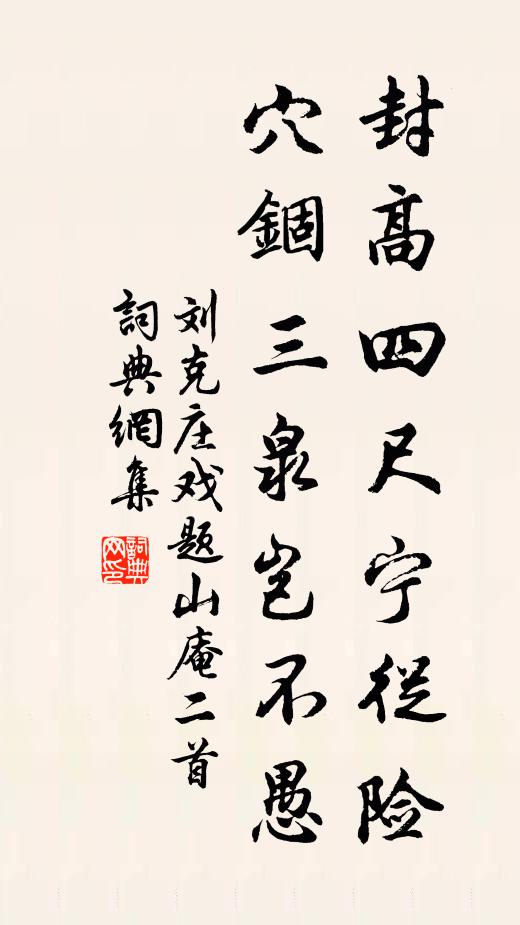 封高四尺宁從险
穴錮三泉岂不愚
刘克庄戏题山庵二首
詞典網集
詞典網印